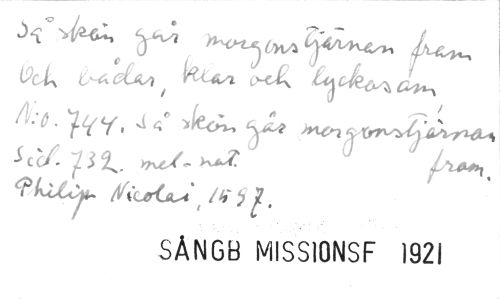 Så skön går morgonstjärnan fram
Och bådar, klar och lyckosam,
N:o. 744. Så skön går morgonstjärnan fram.
Sid. 732. mel-not.
Philip Nicolai, 1597.
SÅNGB MISSIONSF 1921